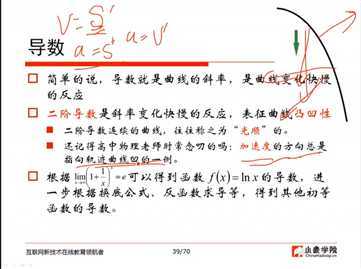 V=S'
a=S'' a=V'
导数
简单的说，导数就是曲线的斜率，是曲线变化快慢
的反应
二阶导数是斜率变化快慢的反应，表征曲线凸凹性
二阶导数连续的曲线，往往称之为“光顺”的。
还记得高中物理老师时常念叨的吗：加速度的方向总是
指向轨迹曲线凹的一侧。
根据 lim(1+1/x)^x=e 可以得到函数 f(x)=ln x 的导数，进
一步根据换底公式、反函数求导等，得到其他初等
函数的导数。
互联网新技术在线教育领航者
39/70
小象学院
ChinaHadoop.cn